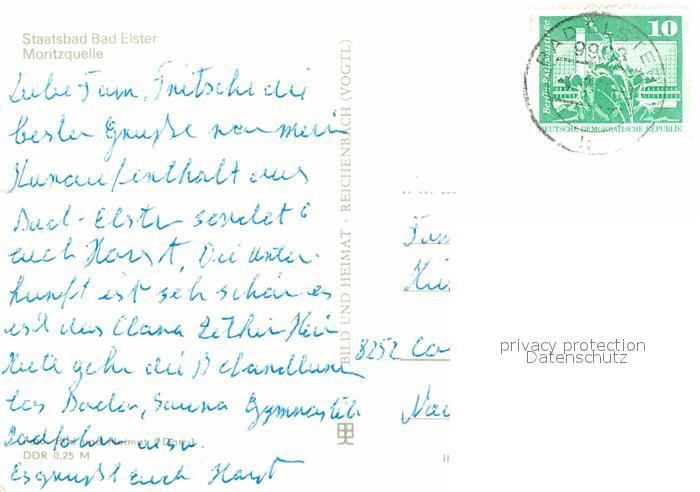 Staatsbad Bad Elster
Moritzquelle
Liebe Fam. Fritsche die
besten Grüße von mein
Kuraufenthalt aus
Bad-Elster sendet
euch Horst, Die Unter-
kunft ist seh schön es
ist das Clara Zetkin Heim
Heute geht die Behandlung
los Bäder, Sauna Gymnastik
Radfahrn usw.
Es grüßt euch Horst
DDR 0,25 M
BILD UND HEIMAT · REICHENBACH (VOGTL)
10
Berlin-Rathausstraße
DEUTSCHE DEMOKRATISCHE REPUBLIK
BAD ELSTE
9903
Fam
8252 Co
privacy protection
Datenschutz
II